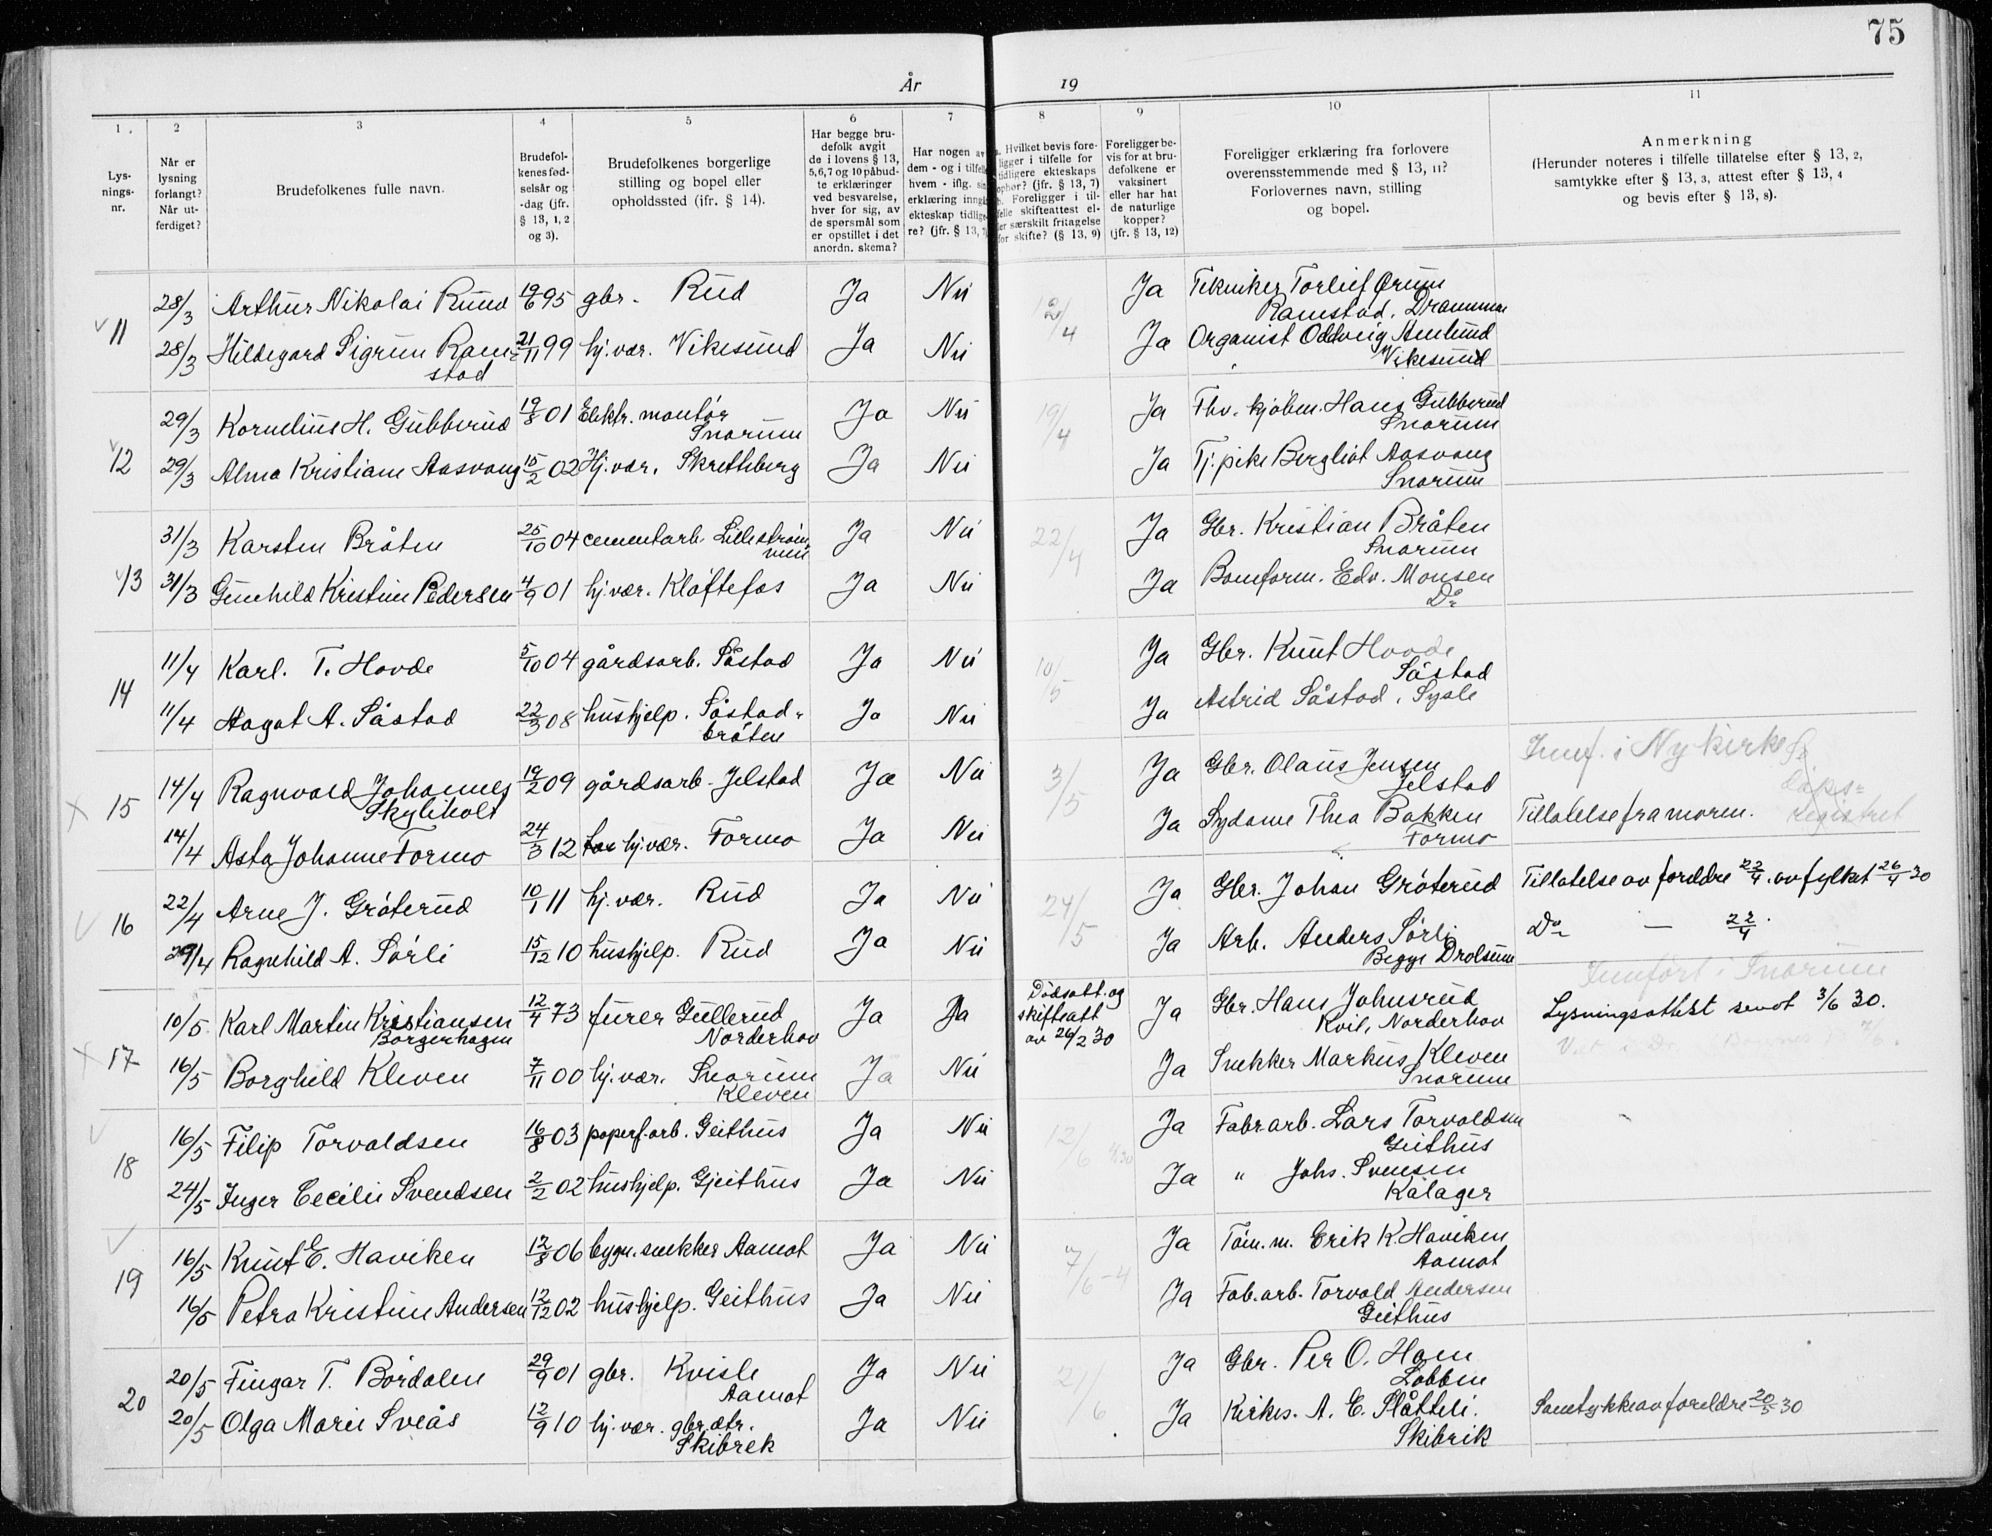 75
År 19
1 2 3 4 5 6 7 8 9 10 11
Lys-
nings-
nr.
Når er
lysning
forlangt?
Når ut-
ferdiget?
Brudefolkenes fulle navn.
Brudefol-
kenes fød-
selsår og
-dag (jfr.
§ 13, 1, 2
og 3).
Brudefolkenes borgerlige
stilling og bopel eller
opholdssted (jfr. § 14).
Har begge bru-
defolk avgit
de i lovens § 13,
5, 6, 7 og 10 påbud-
te erklæringer
ved besvarelse,
hver for sig, av
de spørsmål som
er opstillet i det
anordn. skema?
Har nogen av
dem - og i tilfelle
hvem - iflg. sin
erklæring inngå
ekteskap tidlige-
re? (jfr. § 13, 7
a. Hvilket bevis fore-
ligger i tilfelle for
tidligere ekteskaps
ophør? (jfr. § 13, 7)
b. Foreligger i til-
felle skifteattest el-
ler særskilt fritagelse
for skifte? (§ 13, 9)
Foreligger be-
vis for at bru-
defolkene er
vaksinert
eller har hat
de naturlige
kopper?
(jfr. § 13, 12)
Foreligger erklæring fra forlovere
overensstemmende med § 13, 11?
Forlovernes navn, stilling
og bopel.
Anmerkning
(Herunder noteres i tilfelle tillatelse efter § 13, 2,
samtykke efter § 13, 3, attest efter § 13, 4
og bevis efter § 13, 8).
11 28/3 Arthur Nikolai Ruud 19/6 95 gbr. Rud Ja Nei Ja Tekniker Torleif Ørum
Ramstad, Drammen
28/3 Hildegard Sigrun Ram= 21/11 99 hj.vær. Vikesund Ja Nei Ja Organist Oddveig Amlund
stad Vikesund
12 29/3 Kornelius H. Gubberud 19/8 01 Elektr. montør Ja Nei 19/4 Ja Thv. kjøbm. Hans Gubberud
Snarum Snarum
29/3 Alma Kristiane Aasvang 15/2 02 Hj.vær. Skretteberg Ja Nei Ja Tj.pike Bergliot Aasvang
Snarum
13 31/3 Karsten Bråten 25/10 04 cementarb. Lillestrøm Ja Nei 22/4 Ja Gbr. Kristian Bråten
Snarum
31/3 Gunhild Kristine Pedersen 4/9 01 hj.vær. Kløftefos Ja Nei Ja Bomform. Edv. Monsen
Do
14 11/4 Karl. T. Hovde 5/10 04 gårdsarb. Såstad Ja Nei 10/5 Ja Gbr. Knut Hovde
Såstad
11/4 Aagot A. Såstad 22/3 08 hushjelp. Såstad- Ja Nei Ja Astrid Såstad, Sysle
bråten
15 14/4 Ragnvald Johannes 19/2 09 gårdsarb. Jelstad Ja Nei 3/5 Ja Gbr. Olaus Jensen Innf. i Nykirke
Skyliholt Jelstad dåps=
14/4 Asta Johanne Formo 24/3 12 hj.vær. Formo Ja Nei Ja Sydame Thea Bakken Tillatelse fra moren. registret
Formo
16 22/4 Arne J. Grøterud 10/1 11 hj.vær. Rud Ja Nei 24/5 Ja Gbr. Johan Grøterud Tillatelse av foreldre 22/4. av fylket 26/4 30
29/4 Ragnhild A. Sørli 15/12 10 hushjelp. Rud Ja Nei Ja Arb. Anders Sørli Do — 22/4.
Begge Drolsum
Innført i Snarum
17 10/5 Karl Martin Kristiansen 12/4 73 furer Gullerud Ja Ja Dødsatt. og Ja Gbr. Hans Johnsrud Lysningsattest sendt 3/6 30.
Borgerhagen Norderhov skifteatt Kvil, Norderhov
av 26/2 30
16/5 Borghild Kleven 7/11 00 hj.vær. Snarum Ja Nei Ja Snekker Markus Kleven
Kleven Snarum
18 16/5 Filip Torvaldsen 16/8 03 papirf.arb. Geithus Ja Nei 12/6 Ja Fabr.arb. Lars Torvaldsen
Geithus
24/5 Inger Cecilie Svendsen 2/2 02 hushjelp. Gjeithus Ja Nei Ja " Johs. Svensen
Kålager
19 16/5 Knut E. Haviken 12/8 06 bygn.snekker Aamot Ja Nei 7/6 - 4 Ja Tøm.m. Erik K. Haviken
Aamot
16/5 Petra Kristine Andersen 12/12 02 hushjelp. Geithus Ja Nei Ja Fab.arb. Torvald Andersen
Geithus
20 20/5 Fingar T. Børdalen 29/9 01 gbr. Kvisle Ja Nei 21/6 Ja Gbr. Per O. Ham
Aamot Lobben
20/5 Olga Marie Sveås 12/9 10 hj.vær. gbr.dtr. Ja Nei Ja Kirkes. A. E. Slåtteli. Samtykke av foreldre 20/5 30
Skibrek Skibrik